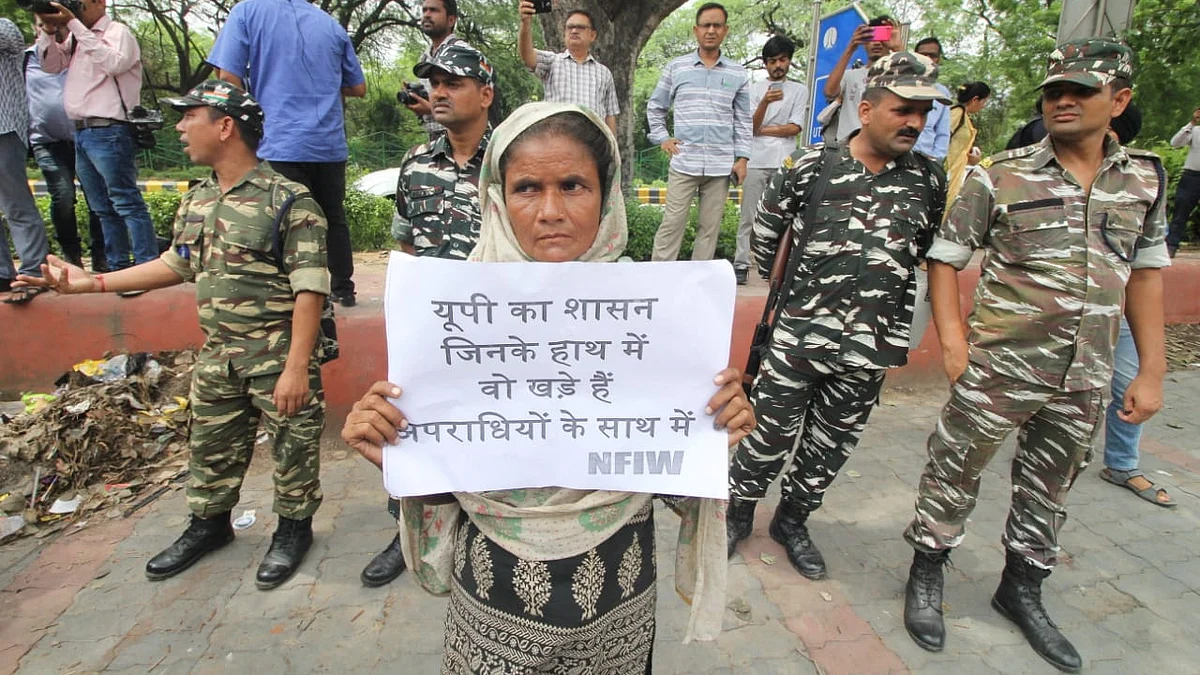 यूपी का शासन
जिनके हाथ में
वो खड़े हैं
अपराधियों के साथ में
NFIW